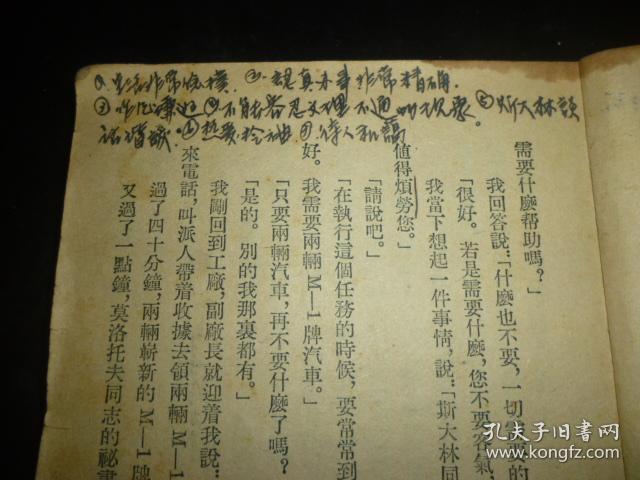 ①生活非常儉樸 ②認真办事非常精確
③ ④不能容忍文理不通的現象。⑤斯大林談
話 ⑥热爱 ⑦待人和謁
需要什麼帮助嗎？」
我回答說：「什麼也不要，一切 的
「很好。若是需要什麼，您不要客氣，
我當下想起一件事情，說：「斯大林同
值得煩勞您。」
「請說吧。」
「在執行這個任務的時候，要常常到
好。我需要兩輛M—1牌汽車。」
「只要兩輛汽車，再不要什麼了嗎？
「是的。別的我那裏都有。」
我剛回到工廠，副廠長就迎着我說：
來電話，叫派人帶着收據去領兩輛M—1
過了四十分鐘，兩輛嶄新的M—1牌
又過了一點鐘，莫洛托夫同志的祕書
孔夫子旧書网
www.kongfz.com